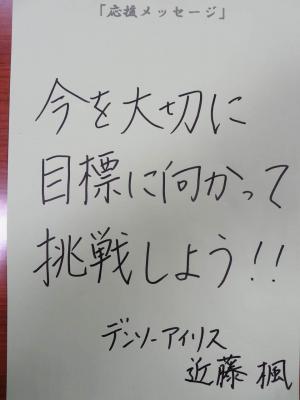 「応援メッセージ」
今を大切に
目標に向かって
挑戦しよう!!
デンソーアイリス
近藤 楓